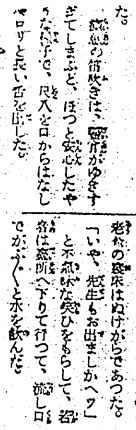 た。
盜怪の笛吹きは、盜賊がゆきす
ぎてしまふと、ほつと安心したや
うな樣子で、尺八を口からはなし
ペロリと長い舌を出した。
老爺の寢床はぬけがらであつた。
「いや、先生もお出ましかへツ」
と不氣味な笑ひをもらして、若
者は臺所へ下りて行つて、流し口
でがぶ〴〵と水を飮んだ。